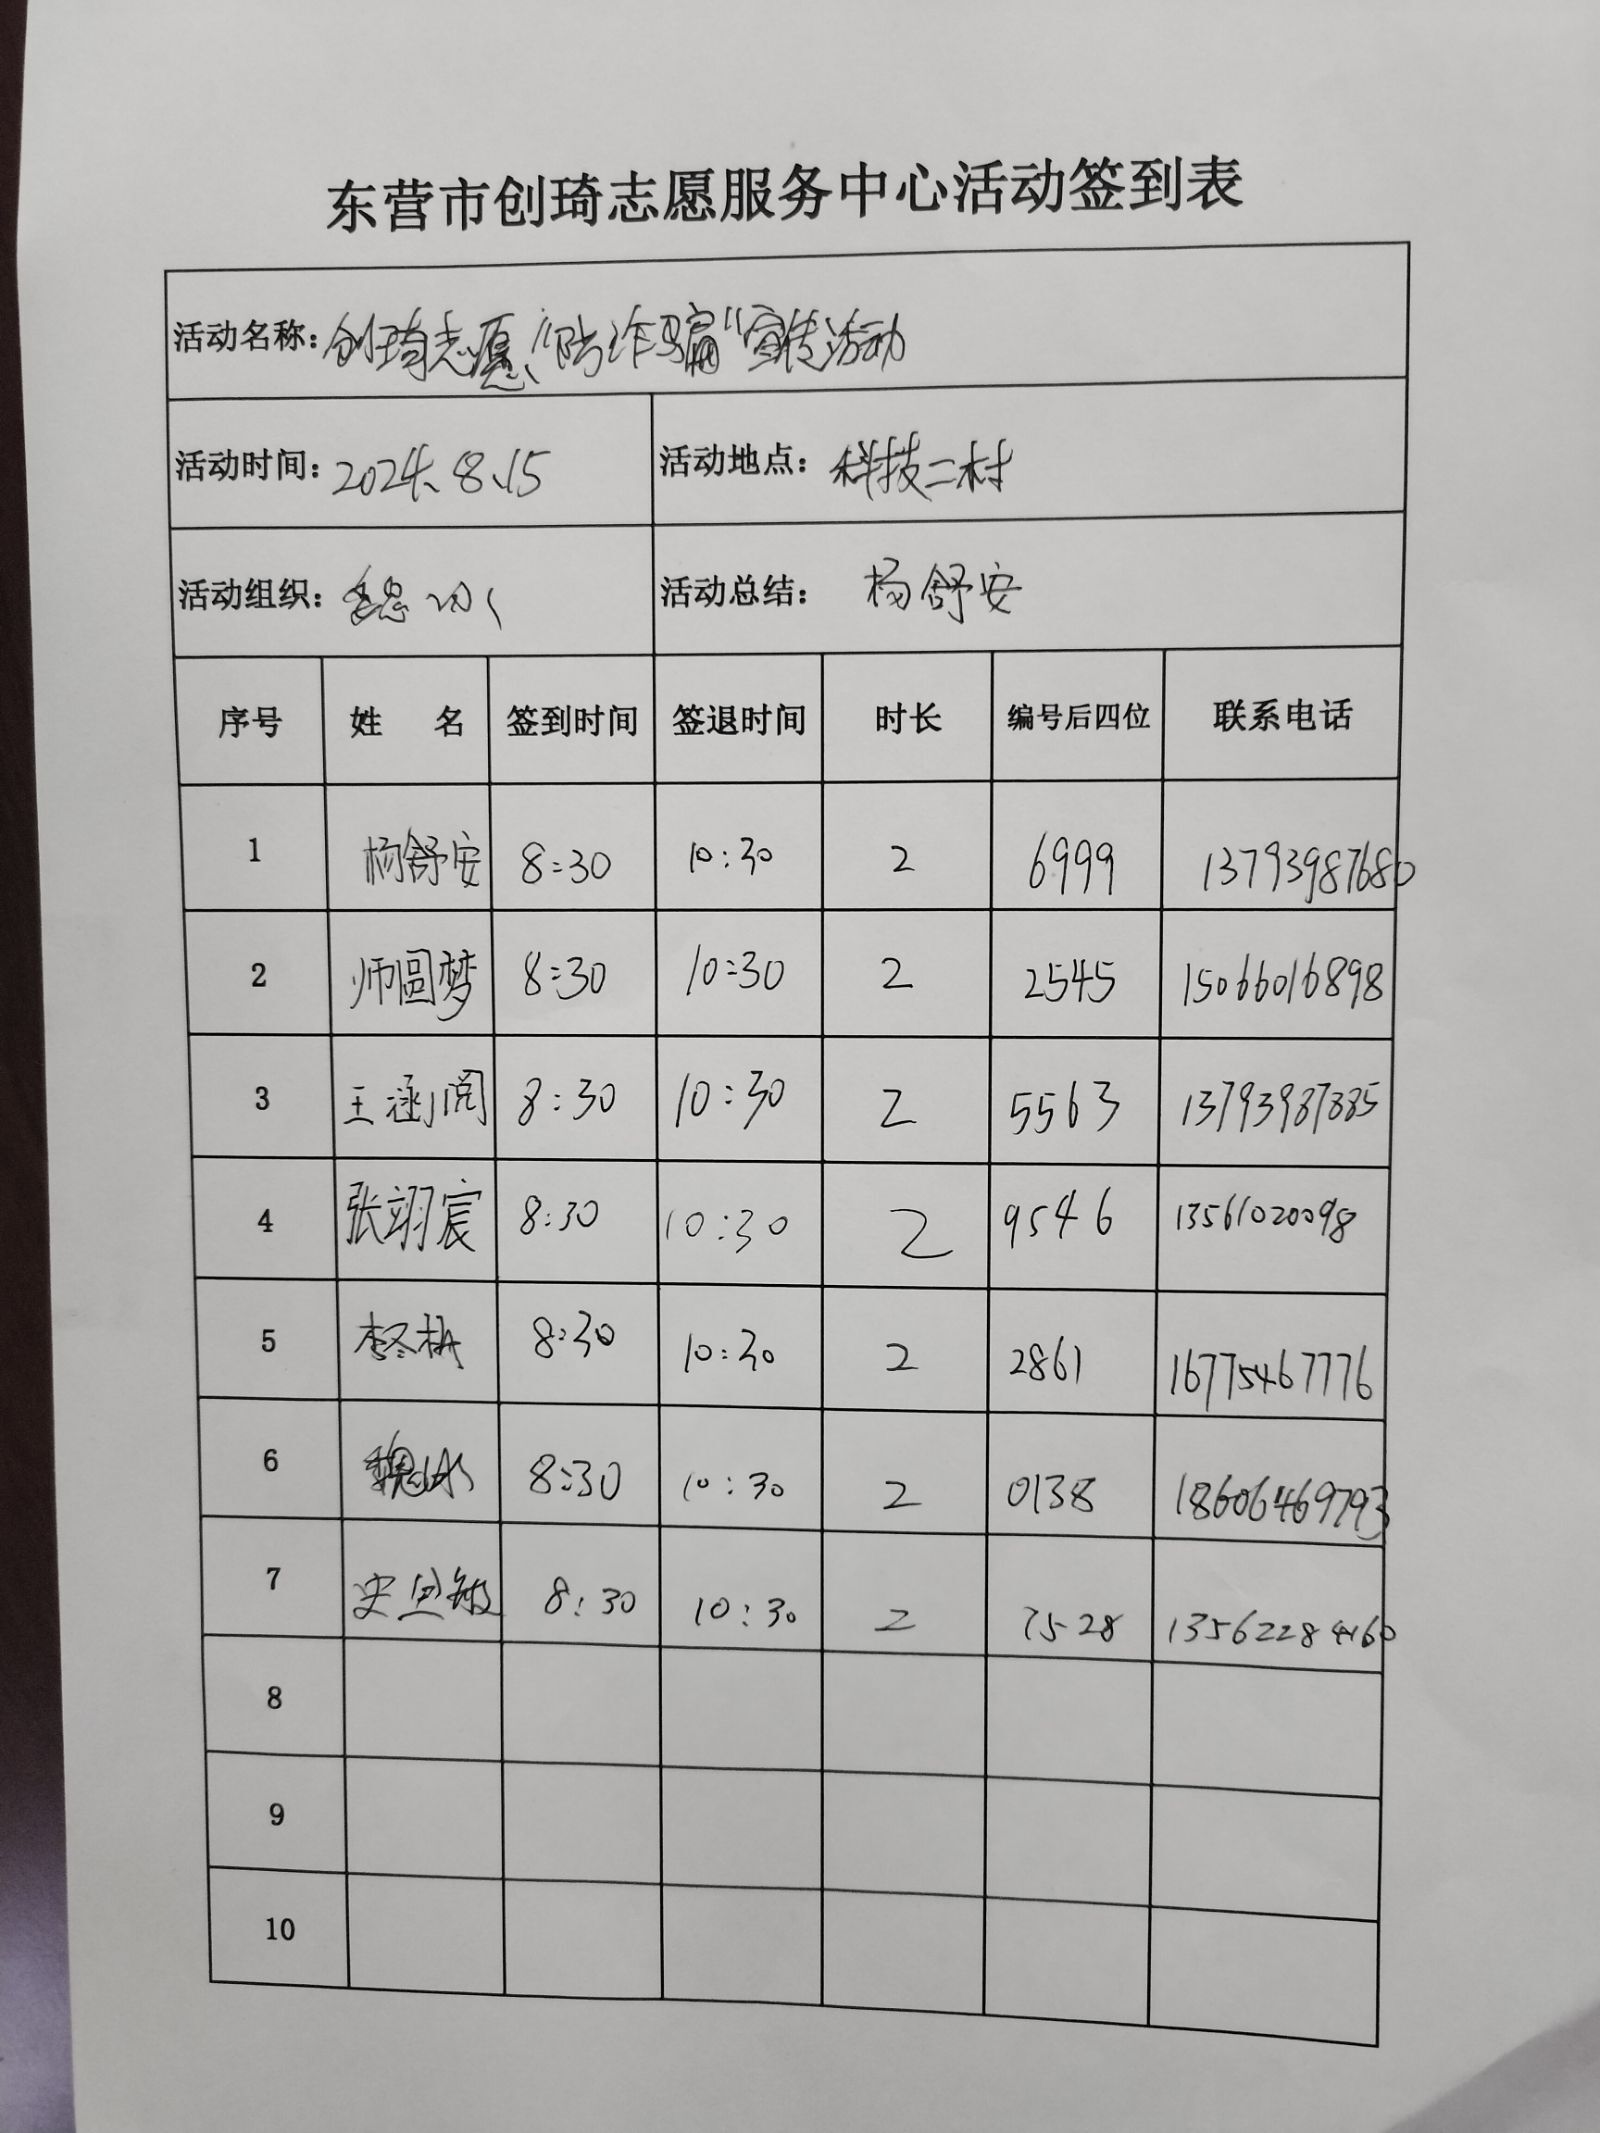 东营市创琦志愿服务中心活动签到表
活动名称：创琦志愿“防诈骗“宣传活动
活动时间：2024.8.15 活动地点：科技二村
活动组织： 活动总结：杨舒安
序号 姓 名 签到时间 签退时间 时长 编号后四位 联系电话
1 杨舒安 8:30 10:30 2 6999 13793987680
2 师圆梦 8:30 10:30 2 2545 15066016898
3 王涵阅 8:30 10:30 2 5563 13793987885
4 张翊宸 8:30 10:30 2 9546 13561020098
5 8:30 10:30 2 2861 16775467776
6 魏冰 8:30 10:30 2 0138 18606469793
7 8:30 10:30 2 7528 13562284160
8
9
10